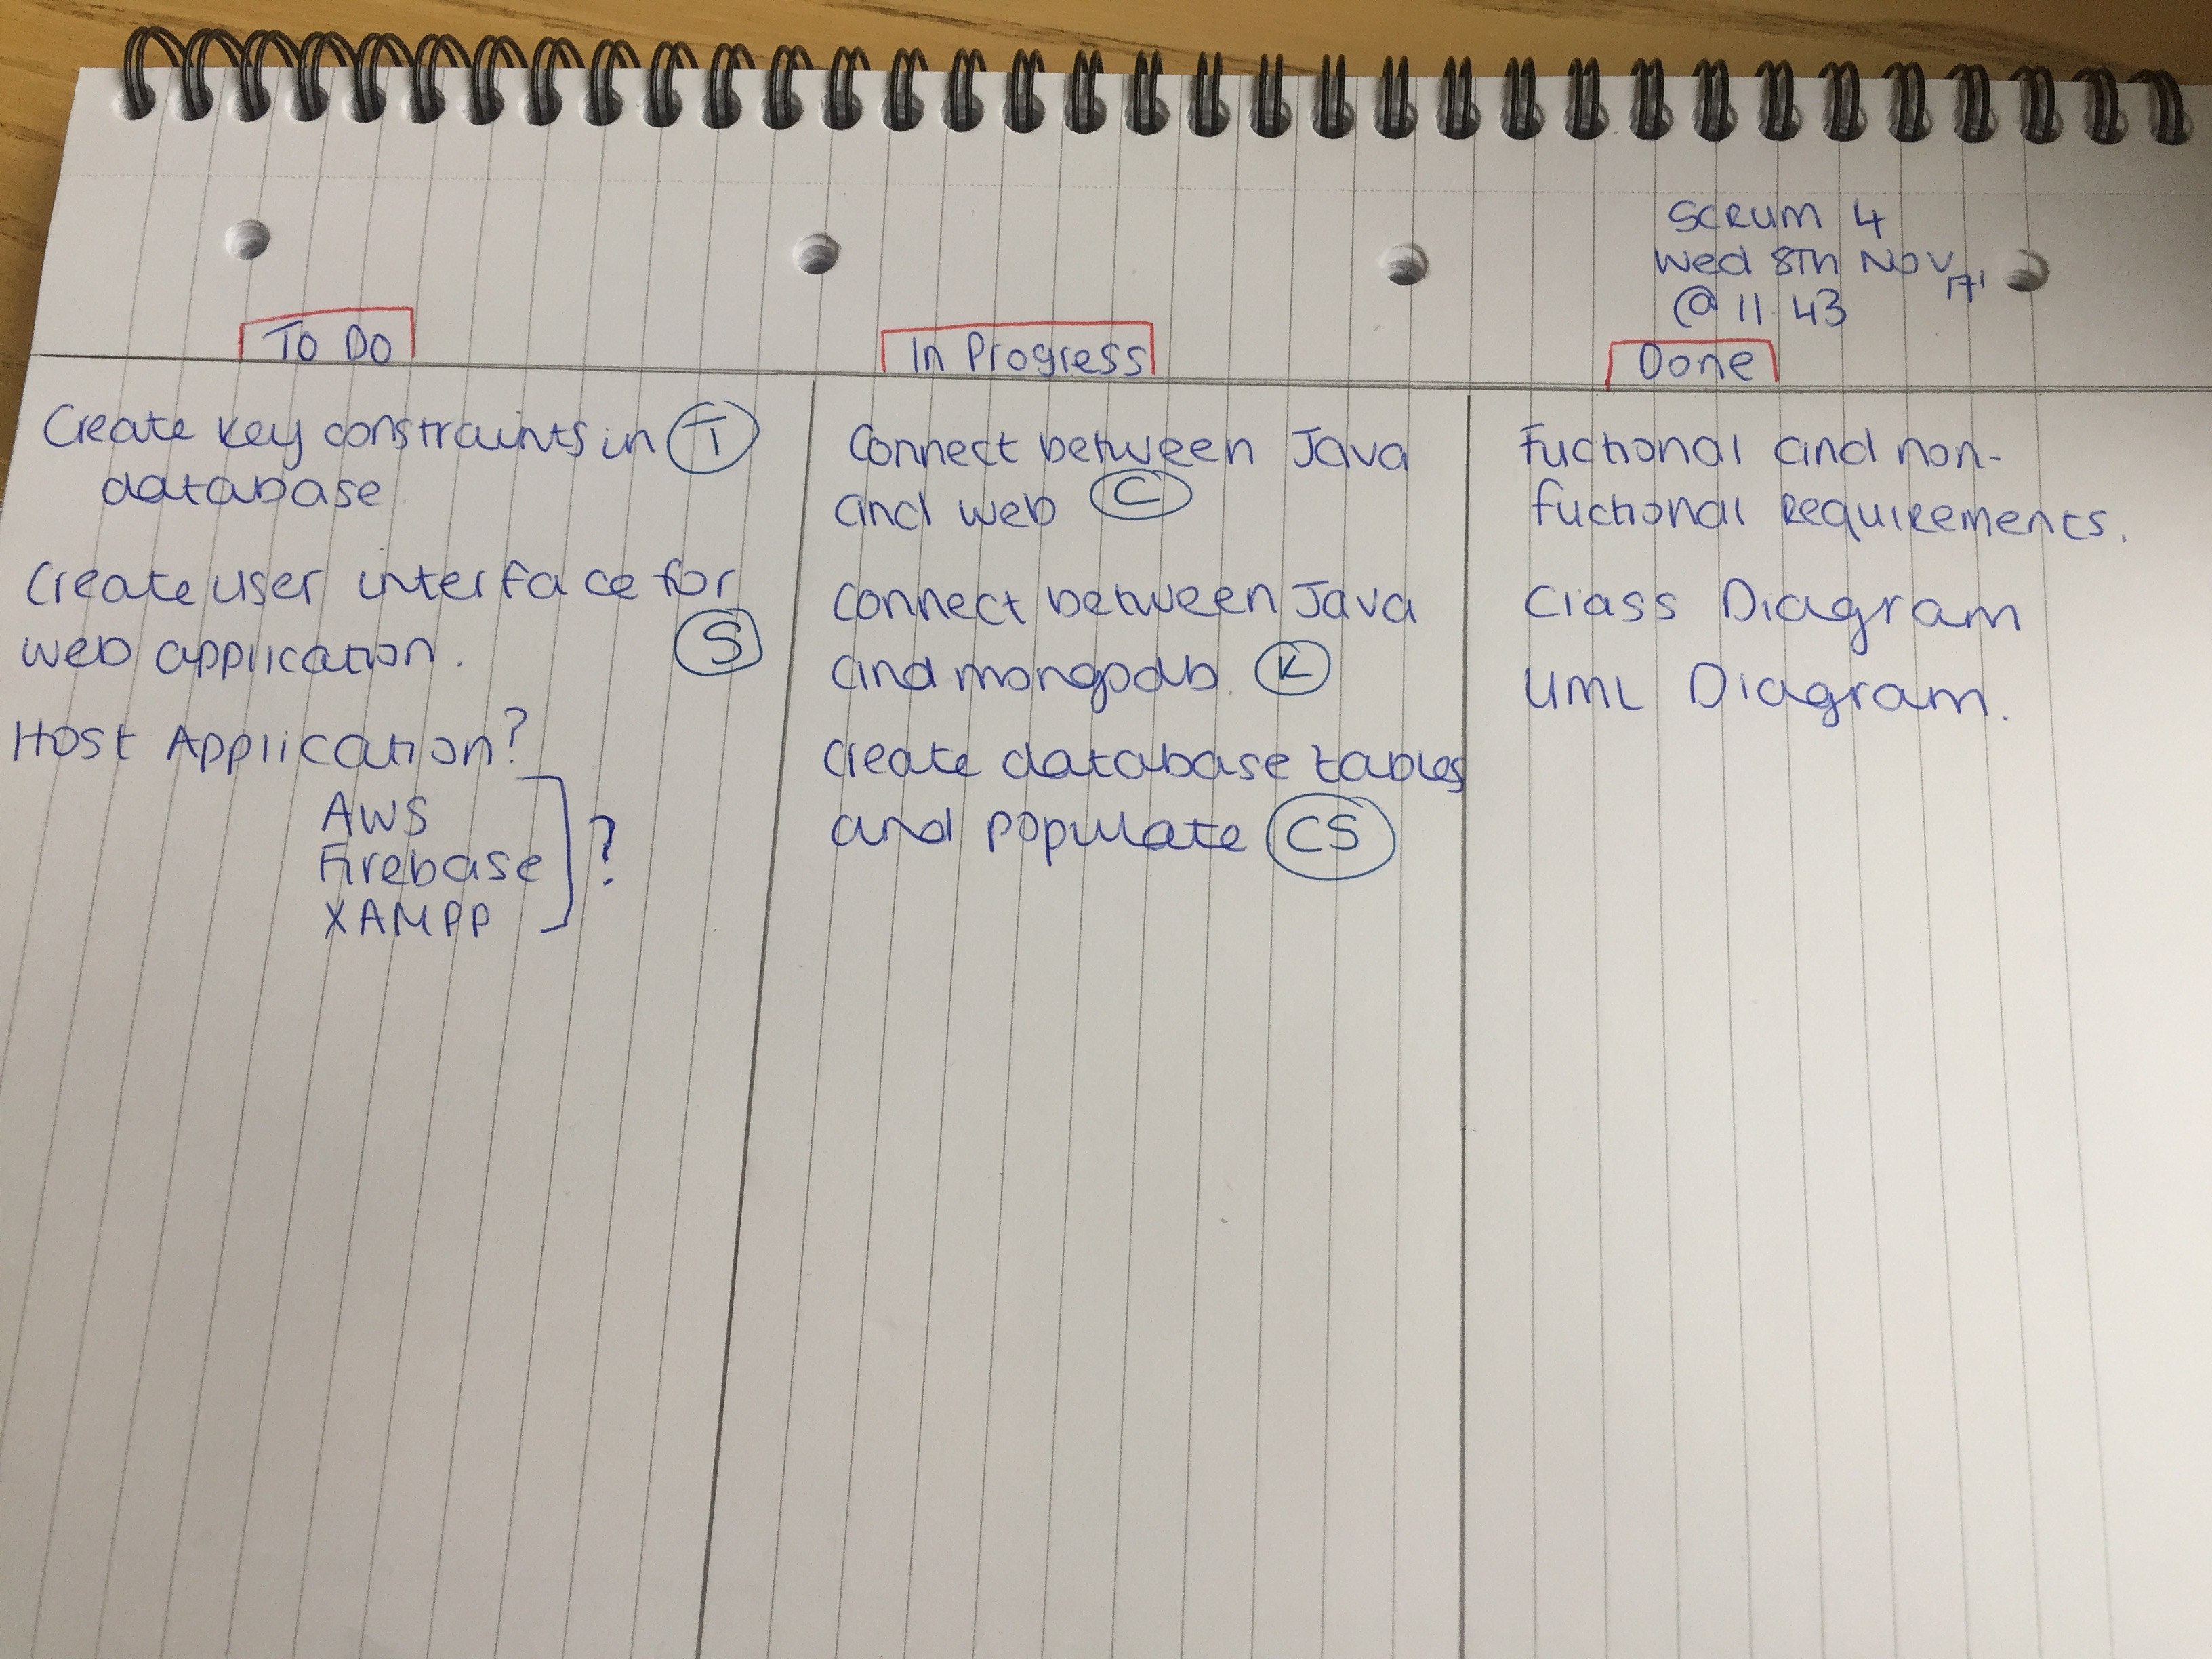 Scrum 4
Wed 8th Nov 17'
@ 11.43
To Do
Create key constraints in T
database
Create user interface for
web application. S
Host Application?
AWS
Firebase ?
XAMPP
In Progress
Connect between Java
and web C
Connect between Java
and mongodb. K
Create database tables
and populate CS
Done
Fuctional and non-
fuctional requirements.
Class Diagram
UML Diagram.